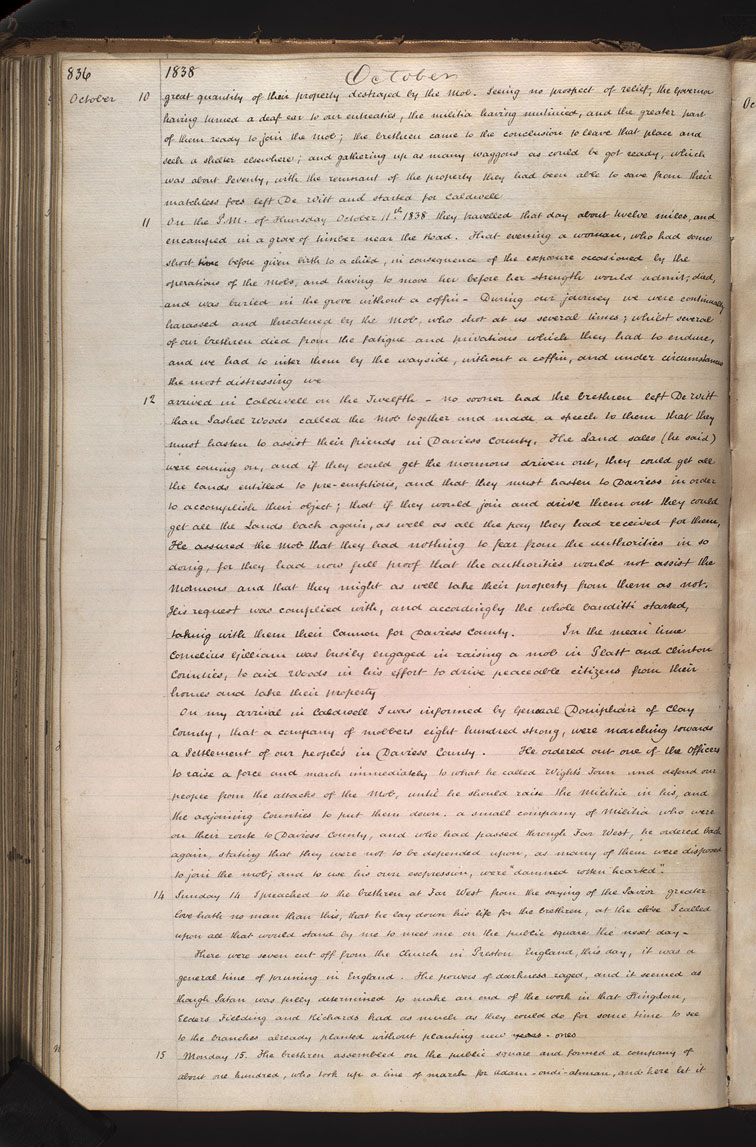 836 1838 October
October 10 great quantity of their property destroyed by the Mob. Seeing no prospect of relief, the Governor
having turned a deaf ear to our entreaties, the militia having mutinied, and the greater part
of them ready to join the Mob; the brethren came to the conclusion to leave that place and
seek a shelter elsewhere; and gathering up as many waggons as could be got ready, which
was about Seventy, with the remnant of the property they had been able to save from their
matchless foes left De Witt and started for Caldwell
11 On the P.M. of Thursday October 11th 1838 they travelled that day about twelve miles, and
encamped in a grove of timber near the Road. That evening a woman, who had some
short time before given birth to a child, in consequence of the exposure occasioned by the
operations of the Mobs, and having to move her before her strength would admit; died,
and was buried in the grove without a coffin - During our journey we were continually
harassed and threatened by the Mob, who shot at us several times; whilst several
of our brethren died from the fatigue and privations which they had to endure,
and we had to inter them by the wayside, without a coffin, and under circumstances
the most distressing we
12 arrived in Caldwell on the Twelfth - no sooner had the brethren left De Witt
than Sashel Woods called the Mob together and made a speech to them that they
must hasten to assist their friends in Daviess County. The Land sales (he said)
were coming on, and if they could get the mormons driven out, they could get all
the lands entitled to pre-emptions, and that they must hasten to Daviess in order
to accomplish their object; that if they would join and drive them out they could
get all the Lands back again, as well as all the pay they had received for them,
He assured the Mob that they had nothing to fear from the authorities in so
doing, for they had now full proof that the authorities would not assist the
Mormons and that they might as well take their property from them as not.
His request was complied with, and accordingly the whole banditti started,
taking with them their Cannon for Daviess County. In the mean time
Cornelius Gilliam was busily engaged in raising a mob in Platt and Clinton
Counties, to aid Woods in his effort to drive peaceable citizens from their
homes and take their property
On my arrival in Caldwell I was informed by General Doniphan of Clay
County, that a company of mobbers eight hundred strong, were marching towards
a Settlement of our people's in Daviess County. He ordered out one of the Officers
to raise a force and march immediately to what he called Wight's Town and defend our
people from the attacks of the Mob, until he should raise the Militia in his, and
the adjoining Counties to put them down. a small company of Militia who were
on their route to Daviess County, and who had passed through Far West, he ordered back
again, stating that they were not to be depended upon, as many of them were disposed
to join the mob; and to use his own expression, were "damned rotten hearted".
14 Sunday 14 I preached to the brethren at Far West from the saying of the Savior greater
love hath no man than this, that he lay down his life for the brethren, at the close I called
upon all that would stand by me to meet me on the public square the next day -
There were seven cut off from the Church in Preston England, this day, it was a
general time of pruning in England. The powers of darkness raged, and it seemed as
though Satan was fully determined to make an end of the work in that Kingdom,
Elders Fielding and Richards had as much as they could do for some time to see
to the branches already planted without planting new ones
15 Monday 15. The brethren assembled on the public square and formed a company of
about one hundred, who took up a line of march for adam-ondi-ahman, and here let it